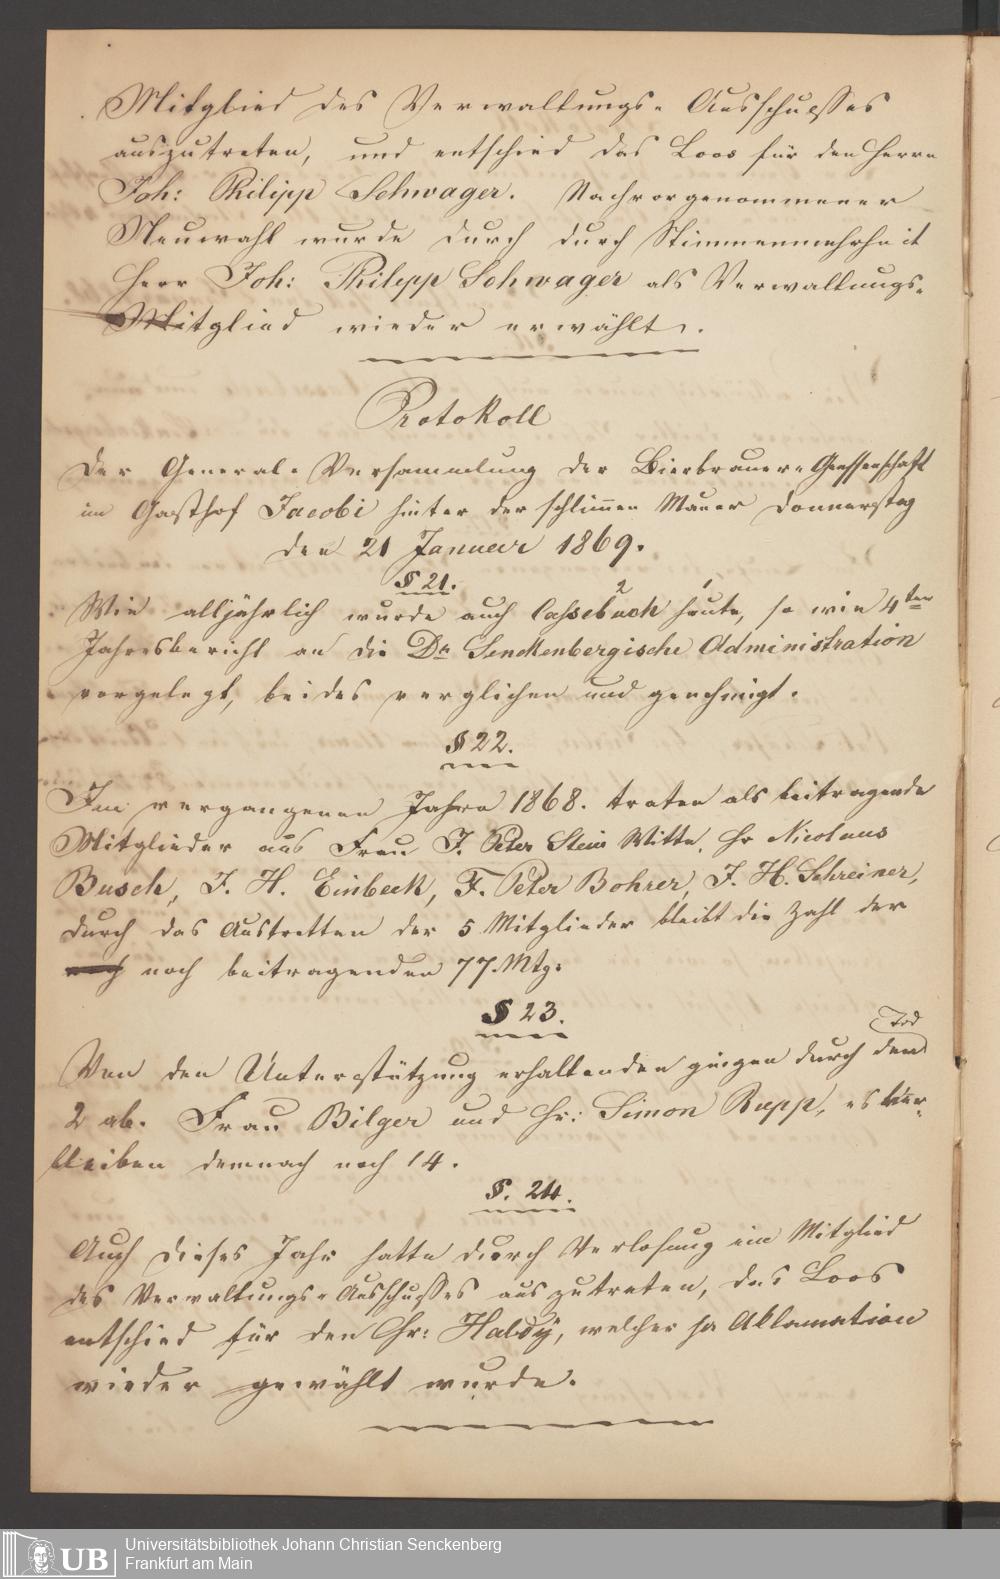 Mitglied des Verwaltungs-Ausschusses
auszutreten, und entschied das Loos für den Herrn
Joh: Philipp Schwager. Nach vorgenommener
Neuwahl wurde durch durch Stimmenmehrheit
Herr Joh: Philipp Schwager als Verwaltungs-
Mitglied wieder erwählt.
Protokoll
Der General-Versammlung der Bierbrauer-Genossenschaft
im Gasthof Jacobi hinter der schlimmen Mauer Donnerstag
den 21 Januar 1869.
§ 21.
Wie alljährlich wurde auch Cassebuch 2 heute 1, so wie 4ter
Jahresbericht an die Dr. Senckenbergische Administration
vorgelegt, beides verglichen und genehmigt.
§ 22.
Im vergangenen Jahre 1868. traten als beitragende
Mitglieder aus Frau J. Peter Stein Witte, Hr Nicolaus
Busch, J. H. Einbeck, F. Peter Bohrer, J. H. Schreiner,
durch das Austretten der 5 Mitglieder bleibt die Zahl der
noch beitragenden 77. Mtg:
§ 23.
Von den Unterstützung erhaltenden gingen durch den Tod
2 ab. Frau Bilger und Hr: Simon Rupp, es ver-
bleiben demnach noch 14.
§. 24.
Auch dieses Jahr hatte durch Verlosung ein Mitglied
des Verwaltungs-Ausschusses auszutreten, das Loos
entschied für den Hr: Haldy, welcher pr Aklamation
wieder gewählt wurde.
Universitätsbibliothek Johann Christian Senckenberg
Frankfurt am Main
UB